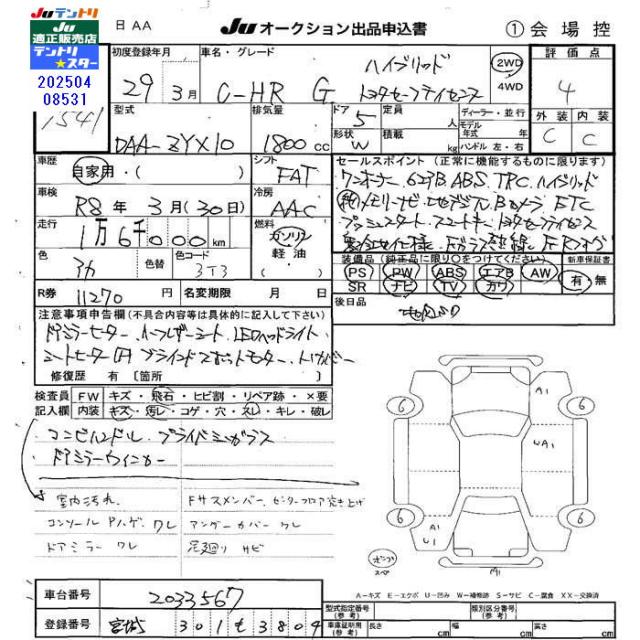 Juテントリ
Ju
適正販売店
テントリ
★スター
202504
08531
日 AA
Ju オークション出品申込書
① 会場控
1541
初度登録年月
29 3月
車名・グレード
C-HR G ハイブリッド
トヨタセーフティセンス
2WD
4WD
評価点
4
外装 内装
C C
型式
DAA-ZYX10
排気量
1800 cc
ドア 5
形状 W
定員 人
積載 kg
ディーラー・並行
モデル年式 年
ハンドル 左・右
車歴
自家用・( )
シフト
FAT
車検
R8年3月(30日)
冷房
AAC
走行
1万6千000km
燃料
ガソリン
軽油
色
アカ
色替
色コード
3T3
セールスポイント (正常に機能するものに限ります)
ワンオーナー、6エアB、ABS、TRC、ハイブリッド
メモリーナビ 地デジTV Bカメラ ETC
プッシュスタート スマートキー トヨタセーフティセンス
装備品 (純正品に限り○をつけてください)
PS PW ABS エアB AW
SR ナビ TV カワ
新車保証書
有 無
R券 11270円
名変期限 月 日
後日品
注意事項申告欄 (不具合内容等は具体的に記入して下さい)
ドアミラーヒーター、ハーフレザーシート、LEDヘッドライト
シートヒーター
修復歴 有 〔箇所 〕
検査員
記入欄
FW キズ・飛石・ヒビ割・リペア跡・×要
内装 キズ・汚レ・コゲ・穴・スレ・キレ・破レ
コンビハンドル、プライバシーガラス
ドアミラーウィンカー
室内汚れ
コンソール Pハゲ、ワレ
ドアミラー ワレ
Fサスメンバー、センターフロア突き上げ
アンダーカバー ワレ
足廻り サビ
6
6
6
6
A1
UA1
A1
U1
M1
A-キズ E-エクボ U-凹み W-補修跡 S-サビ C-腐食 XX-交換済
車台番号 2033567
登録番号 宮城 301 も 3804
型式指定番号
(参考)
類別区分番号
(参考)
車庫証明用
(参考)
長さ cm
幅 cm
高さ cm